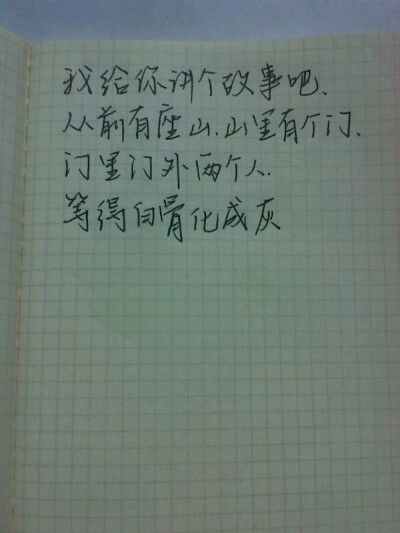 我给你讲个故事吧、
从前有座山.山里有个门、
门里门外两个人.
等得白骨化成灰